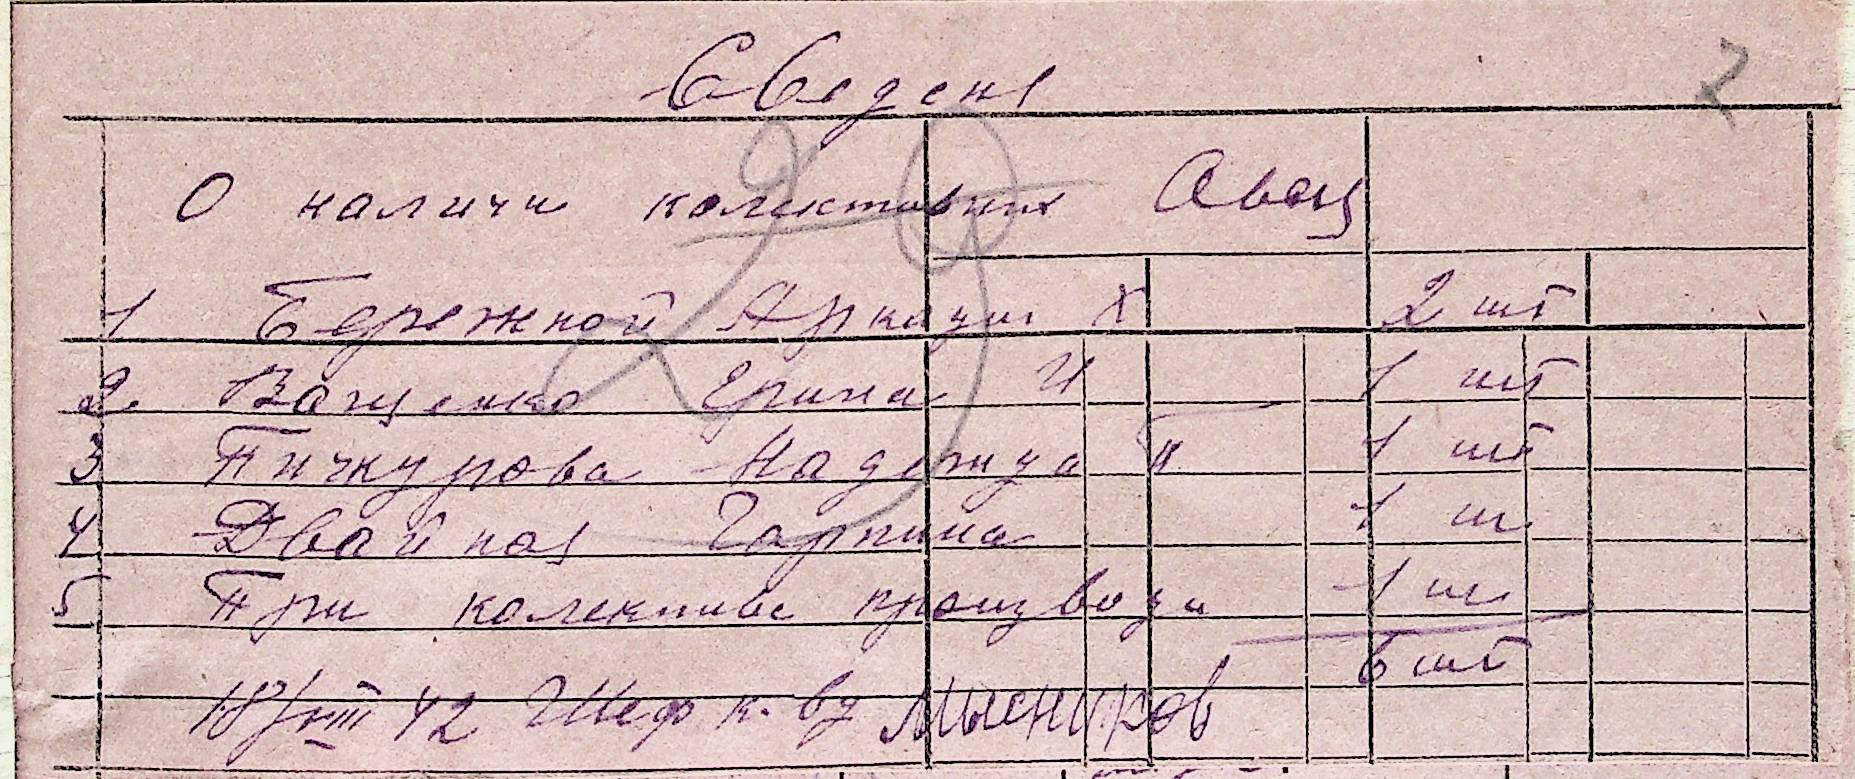 Сведени
7
О наличи колективних Авец
1 Бережной Аркади Х 2 шт
2. Ващенко Ерина И 1 шт
3 Пичкурова Надежда П 1 шт
4 Двайная Гарпина 1 ш
5 При колективе производи 1 ш
6 шт
18/VIII 42 Шеф к. вз Мысников